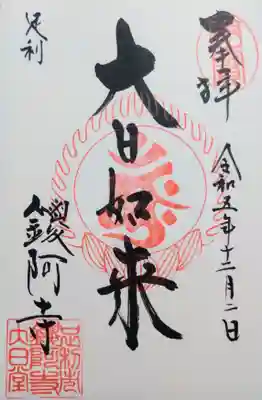 奉拝
令和五年十二月二日
大日如来
足利
鑁阿寺
足利庄
鑁阿寺
大日堂